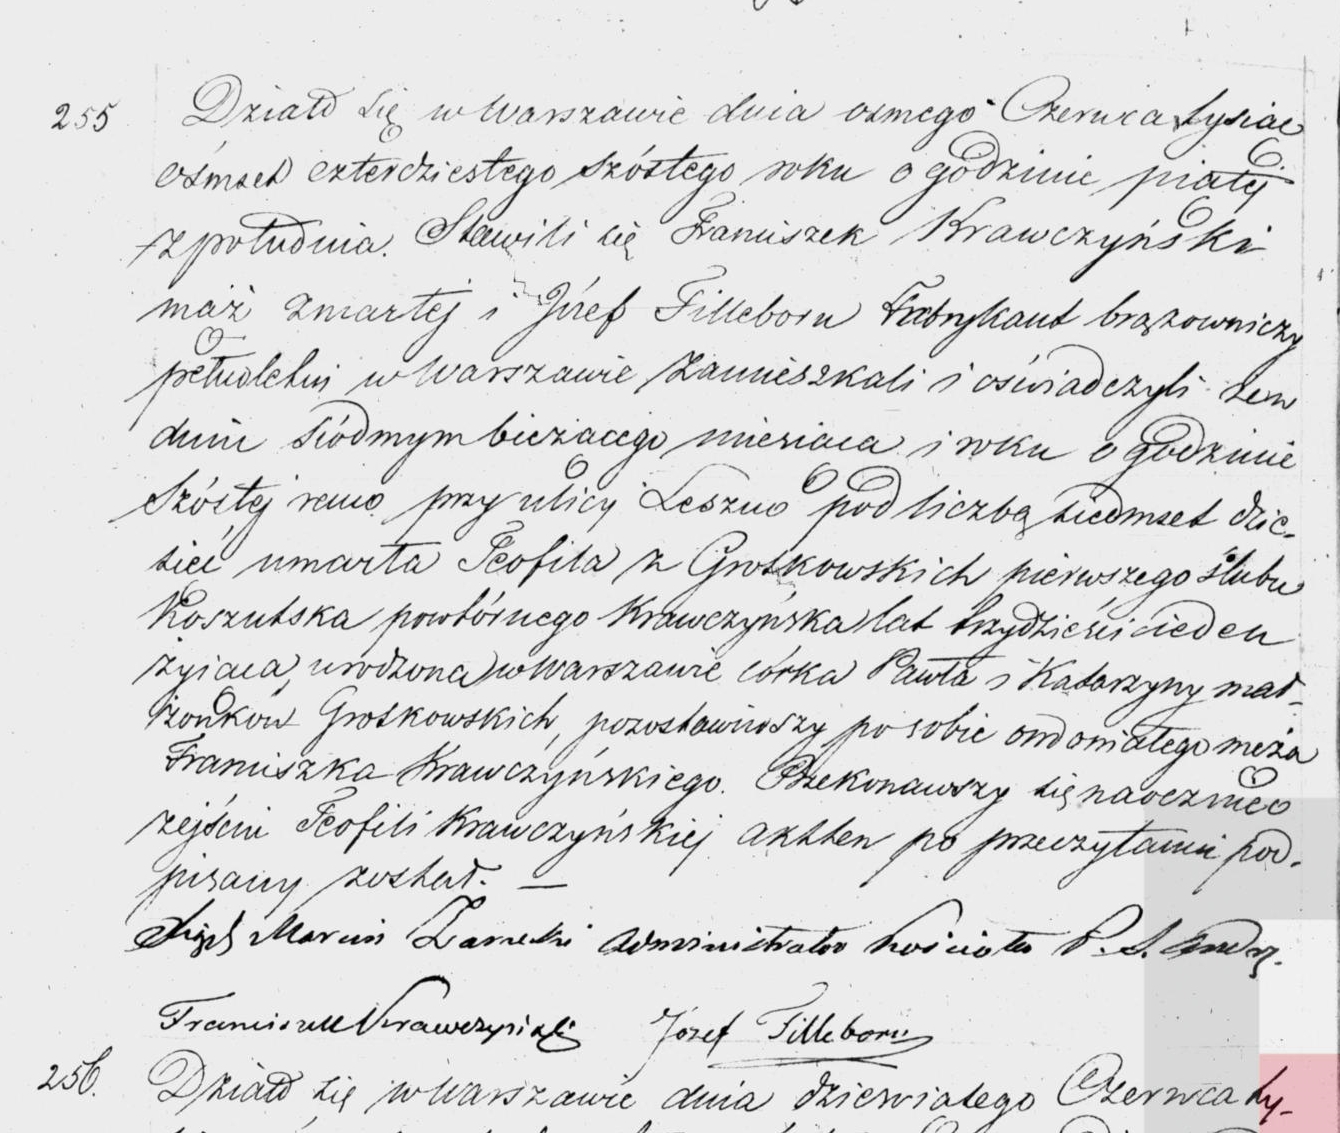 255 Działo się w Warszawie dnia osmego Czerwca tysiac
ośmset czterdziestego szóstego roku o godzinie piątej
z południa. Stawili się Franciszek Krawczyński
mąż zmarłej i Józef Filleborn Fabrykant brązowniczy
pełnoletni w Warszawie zamieszkali i oświadczyli że w
dniu siódmym bieżacego miesiaca i roku o godzinie
szóstej rano przy ulicy Leszno pod liczbą siedmset dzie-
sieć umarła Teofila z Grotkowskich pierwszego ślubu
Koszutska powtórnego Krawczyńska lat trzydzieści ieden
żyiaca, urodzona w Warszawie córka Pawła i Katarzyny mał-
żonków Grotkowskich, pozostawiwszy po sobie owdowiałego męża
Franciszka Krawczyńskiego. Przekonawszy się naocznie o
zejściu Teofili Krawczyńskiej akt ten po przeczytaniu pod-
pisany został. —
Marcin Administrator Kościoła P. S.
Franciszek Krawczyński Józef Filleborn
256. Działo się w Warszawie dnia dziewiatego Czerwca ty-